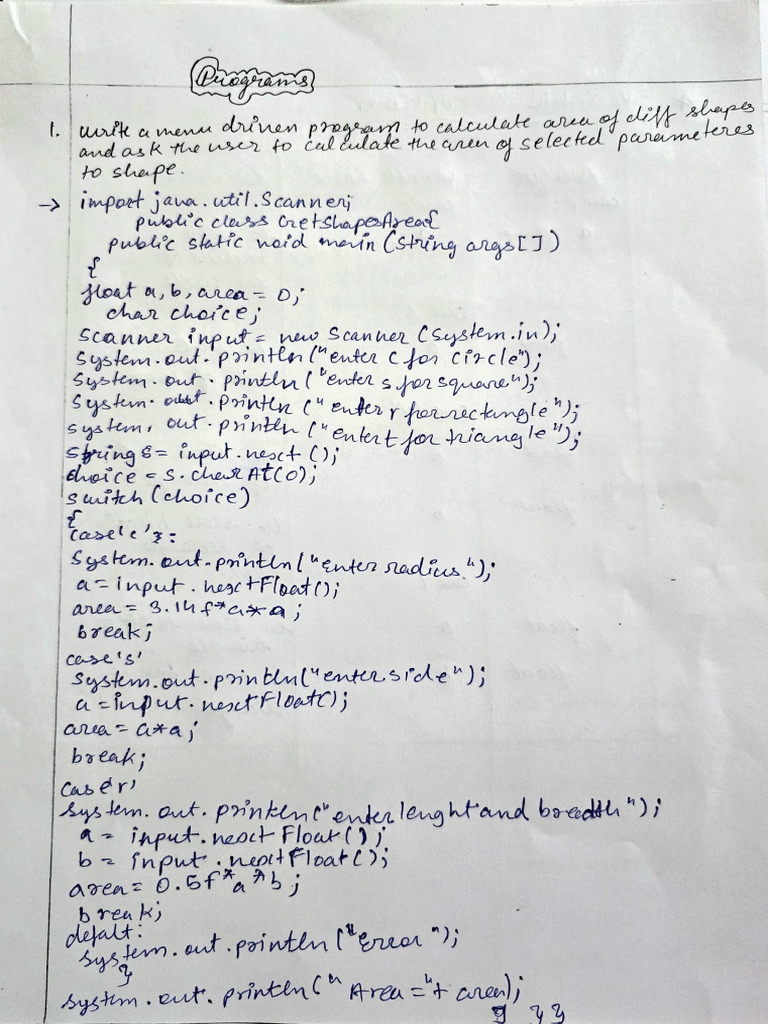 Programs
1. write a menu driven program to calculate area of diff shapes
and ask the user to calculate the area of selected parameteres
to shape.
→ import java.util.Scanner;
public class CretshapesArea{
public static void main (String args[])
{
float a, b, area = 0;
char choice;
Scanner input = new Scanner (System.in);
System.out.println("enter c for circle");
System.out.println("enter s for square");
System.out.println("enter r for rectangle");
system.out.println("enter t for triangle");
string s = input.next();
choice = s.charAt(0);
switch (choice)
{
case 'c':
System.out.println("enter radius");
a = input.nextFloat();
area = 3.14f*a*a;
break;
case 's'
System.out.println("enter side");
a = input.nextFloat();
area = a*a;
break;
case 'r'
System.out.println("enter lenght and breadth");
a = input.next Float();
b = input.nextFloat();
area = 0.5f*a*b;
break;
defalt:
system.out.println("Error");
}
system.out.println("Area = "+ area);
}}